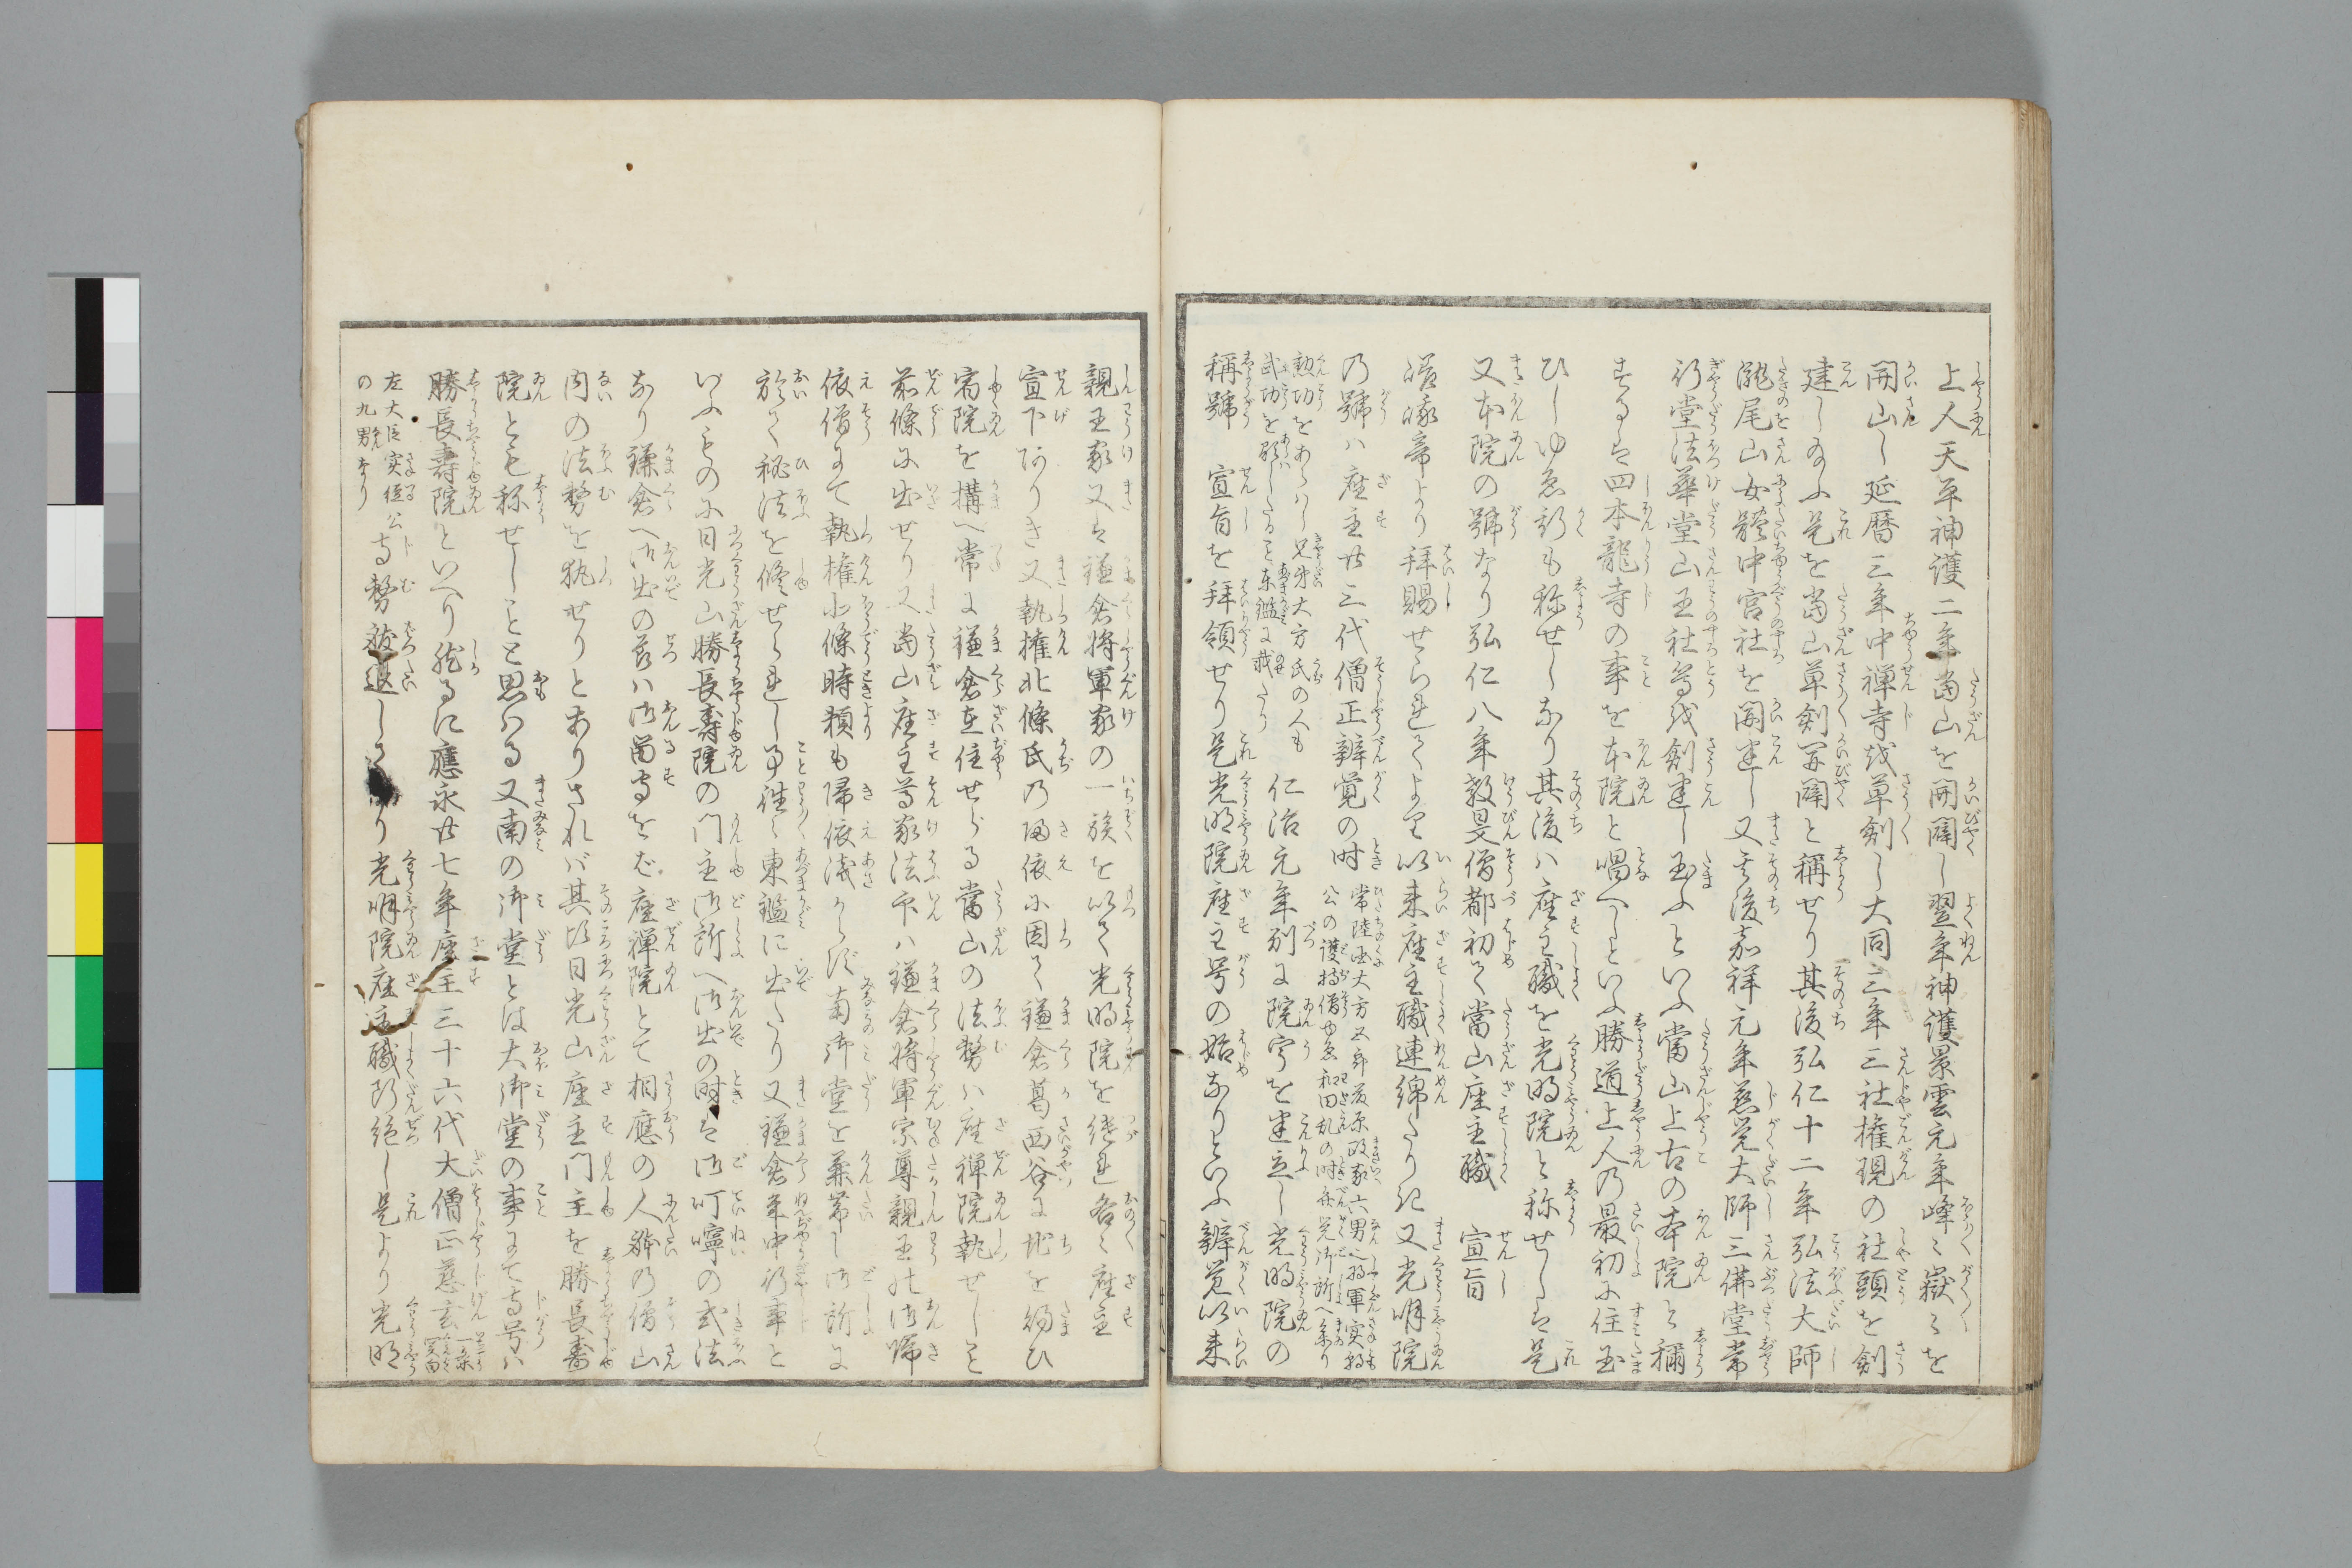 上人天平神護二年當山を開闢し翌年神護景雲元年峰々嶽々を
開山し延暦三年中禅寺を草創し大同三年三社権現の社頭を創
建し給ふ是を當山草創開闢と稱せり其後弘仁十二年弘法大師
瀧尾山女體中宮社を開建し又其後嘉祥元年慈覚大師三佛堂常
行堂法華堂山王社等を創建し玉ふといふ當山上古の本院と稱
するは四本龍寺の事を本院と唱へしといふ勝道上人の最初に住玉
ひしゆゑ斯も称せしなり其後ハ座主職を光明院と称せしは是
又本院の號なり弘仁八年教旻僧都初て當山座主職 宣旨
嵯峨帝より拝賜せられてより以来座主職連綿たり又光明院
の號ハ座主廿三代僧正辨覚の時
常陸国大方五郎藤原政家六男也将軍実朝
公の護持僧ゆゑ和田乱の時弁覚御所へ参り
勲功をあらハし兄弟大方氏の人も
武功を顕したること東鑑に載たり
仁治元年別に院宇を建立し光明院の
稱號 宣旨を拝領せり是光明院座主号の始なりといふ辨覚以来
親王家又は鎌倉将軍家の一族を以て光明院を継れ各々座主
宣下ありき又執権北條氏の帰依に因て鎌倉葛西谷に地を給ひ
宿院を構へ常に鎌倉在住せらる當山の法務ハ座禅院執せしこと
前條に出せり又當山座主尊家法印ハ鎌倉将軍宗尊親王の御帰
依僧にて執権北條時頼も帰依浅からず南御堂を兼帯し御所に
於て秘法を修せられし事往々東鑑に出たり又鎌倉年中行事と
いふものに日光山勝長壽院の門主御所へ御出の時は御叮嚀の式法
なり鎌倉へ御出の節ハ御留守をば座禅院とて相應の人躰の僧山
内の法務を執せりとありされバ其頃日光山座主門主を勝長壽
院とも称せしことと思はる又南の御堂とは大御堂の事にて寺号ハ
勝長壽院といへり然るに應永廿七年座主三十六代大僧正慈玄
左大臣実
の九男なり
公寺務辞退しける
より光明院座主職断絶し是より光明